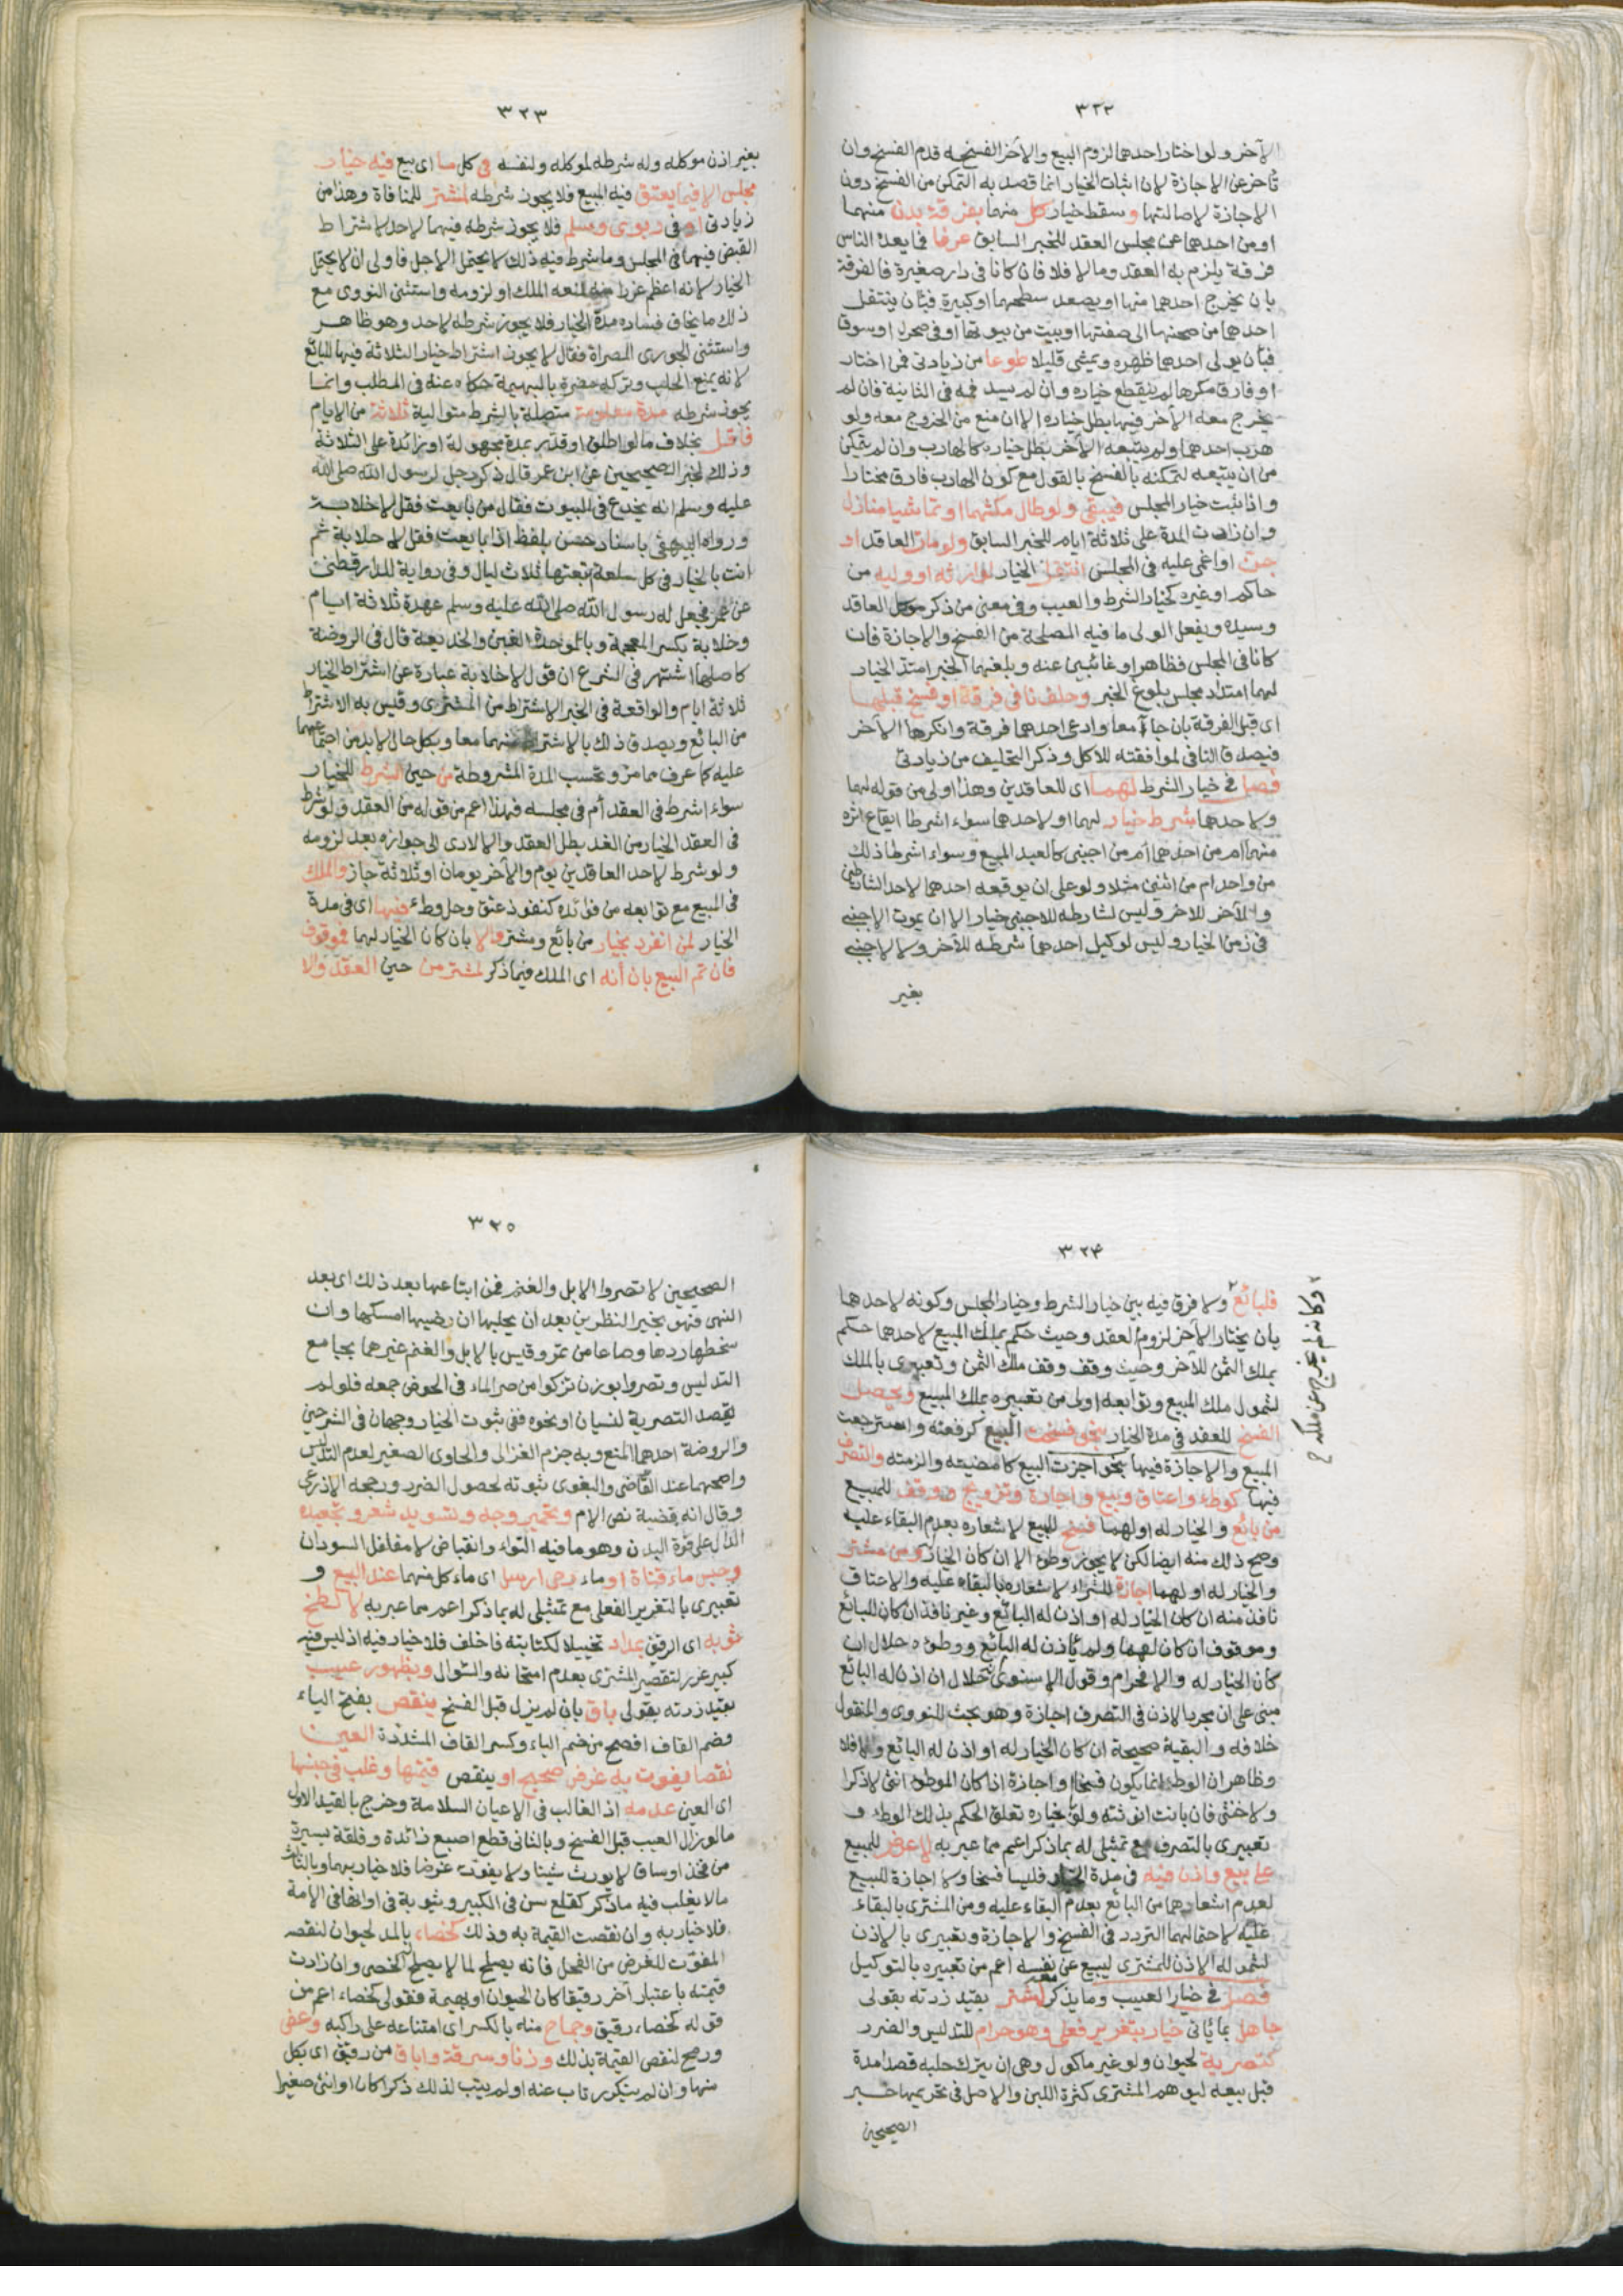 ٣٢٢
الآخر ولو اختار احدهما لزوم البيع والآخر الفسخ قدم الفسخ وان
تأخر عن الاجازة لان اثبات الخيار انما قصد به التمكن من الفسخ دون
الاجازة لاصالتها وسقط خيار كل منهما بفرقة بدن منهما
او من احدهما عن مجلس العقد للخبر السابق عرفا فما يعده الناس
فرقة يلزم به العقد وما لا فلا فان كانا في دار صغيرة فالفرقة
بان يخرج احدهما منها او يصعد سطحها او كبيرة فبأن ينتقل
احدهما من صحنها الى صفتها او بيت من بيوتها او في صحراء او سوق
فبأن يولى احدهما ظهره ويمشى قليلا طوعا من زيادتى فمن اختار
او فارق مكرها لم ينقطع خياره وان لم يسد فمه في الثانية فان لم
يخرج معه الآخر فيها بطل خياره الا ان منع من الخروج معه ولو
هرب احدهما ولم يتبعه الآخر بطل خياره كالهارب وان لم يتمكن
من ان يتبعه لتمكنه بالفسخ بالقول مع كون الهارب فارق مختارا
واذا ثبت خيار المجلس فيبقى ولو طال مكثهما او تماشيا منازل
وان زادت المدة على ثلاثة ايام للخبر السابق ولو مات العاقد او
جن او اغمى عليه في المجلس انتقل الخيار لوارثه او وليه من
حاكم او غيره كخيار الشرط والعيب وفي معنى من ذكر موكل العاقد
وسيده ويفعل الولى ما فيه المصلحة من الفسخ والاجازة فان
كانا في المجلس فظاهر او غائبين عنه وبلغهما الخبر امتد الخيار
لهما امتداد مجلس بلوغ الخبر وحلف نافى فرقة او فسخ قبلها
اى قبل الفرقة بان جاآ معا وادعى احدهما فرقة وانكرها الآخر
فيصدق النافى لموافقته للاصل وذكر التحليف من زيادتى
فصل في خيار الشرط لهما اى للعاقدين وهذا اولى من قوله لهما
ولاحدهما شرط خيار لهما او لاحدهما سواء اشرطا ايقاع اثره
منهما ام من احدهما ام من اجنبى كالعبد المبيع وسواء اشرطا ذلك
من واحد ام من اثنين مثلا ولو على ان يوقعه احدهما لاحد الشارطين
والآخر للآخر وليس لشارطه للاجنبى خيار الا ان يموت الاجنبى
في زمن الخيار وليس لوكيل احدهما شرطه للآخر ولا لاجنبى
بغير
٣٢٣
بغير اذن موكله وله شرطه لموكله ولنفسه في كل ما اى بيع فيه خيار
مجلس الا فيما يعتق فيه المبيع فلا يجوز شرطه لمشتر للمنافاة وهذا من
زيادتى او في ربوى وسلم فلا يجوز شرطه فيهما لاحد لاشتراط
القبض فيهما في المجلس وما شرط فيه ذلك لا يحتمل الاجل فاولى ان لا يحتمل
الخيار لانه اعظم غررا منه لمنعه الملك او لزومه واستثنى النووى مع
ذلك ما يخاف فساده مدة الخيار فلا يجوز شرطه لاحد وهو ظاهر
واستثنى الجورى المصراة فقال لا يجوز اشتراط خيار الثلاثة فيها للبائع
لانه يمنع الحلب وتركه مضرة بالبهيمة حكاه عنه في المطلب وانما
يجوز شرطه مدة معلومة متصلة بالشرط متوالية ثلاثة من الايام
فأقل بخلاف ما لو اطلق او قدر بمدة مجهولة او زائدة على الثلاثة
وذلك لخبر الصحيحين عن ابن عمر قال ذكر رجل لرسول الله صلى الله
عليه وسلم انه يخدع في البيوت فقال من بايعت فقل لا خلابة
ورواه البيهقى باسناد حسن بلفظ اذا بايعت فقل لا خلابة ثم
انت بالخيار في كل سلعة ابتعتها ثلاث ليال وفي رواية للدارقطنى
عن عمر فجعل له رسول الله صلى الله عليه وسلم عهدة ثلاثة ايام
وخلابة بكسر المعجمة وبالموحدة الغبن والخديعة قال في الروضة
كاصلها اشتهر في الشرع ان قول لا خلابة عبارة عن اشتراط الخيار
ثلاثة ايام والواقعة في الخبر الاشتراط من المشترى وقيس به الاشتراط
من البائع ويصدق ذلك بالاشتراط منهما معا وبكل حال لا بد من اجتماعهما
عليه كما عرف مما مر وتحسب المدة المشروطة من حين الشرط للخيار
سواء اشرط في العقد أم في مجلسه فهذا اعم من قوله من العقد ولو شرط
في العقد الخيار من الغد بطل العقد والا لادى الى جوازه بعد لزومه
ولو شرط لاحد العاقدين يوم والآخر يومان او ثلاثة جاز والملك
في المبيع مع توابعه من فوائده كنفوذ عتق وحل وطء فيها اى في مدة
الخيار لمن انفرد بخيار من بائع ومشتر والا بان كان الخيار لهما فموقوف
فان تم البيع بان أنه اى الملك فيما ذكر لمشتر من حين العقد والا
٣٢٤
فلبائع ولا فرق فيه بين خيار الشرط وخيار المجلس وكونه لاحدهما
بان يختار الآخر لزوم العقد وحيث حكم بملك المبيع لاحدهما حكم
بملك الثمن للآخر وحيث وقف وقف ملك الثمن وتعبيرى بالملك
لشمول ملك المبيع وتوابعه اولى من تعبيره بملك المبيع ويحصل
الفسخ للعقد في مدة الخيار بنحو فسخت البيع كرفعته واسترجعت
المبيع والاجازة فيها بنحو اجزت البيع كامضيته والزمته والتصرف
فيها كوطء واعتاق وبيع واجارة وتزويج ووقف للمبيع
من بائع والخيار له او لهما فسخ للبيع لاشعاره بعدم البقاء عليه
وصح ذلك منه ايضا لكن لا يجوز وطؤه الا ان كان الخيار له ومن مشتر
والخيار له او لهما اجازة للشراء لاشعاره بالبقاء عليه والاعتاق
نافذ منه ان كان الخيار له او اذن له البائع وغير نافذ ان كان للبائع
وموقوف ان كان لهما ولم يأذن له البائع ووطؤه حلال ان
كان الخيار له والا فحرام وقول الاسنوى انه حلال ان اذن له البائع
مبنى على ان مجرد الاذن في التصرف اجازة وهو بحث للنووى والمنقول
خلافه والبقية صحيحة ان كان الخيار له او اذن له البائع والا فلا
وظاهر ان الوطء انما يكون فسخا او اجازة اذا كان الموطوء انثى لا ذكرا
ولا خنثى فان بانت انوثته ولو باخباره تعلق الحكم بذلك الوطء و
تعبيرى بالتصرف مع تمثيلى له بما ذكر اعم مما عبر به لا عرض للمبيع
على بيع واذن فيه في مدة الخيار فليسا فسخا ولا اجازة للبيع
لعدم اشعارهما من البائع بعدم البقاء عليه ومن المشترى بالبقاء
عليه لاحتمالهما التردد في الفسخ والاجازة وتعبيرى بالاذن
لشموله الاذن للمشترى ليبيع عن نفسه اعم من تعبيره بالتوكيل
فصل في خيار العيب وما يذكر معه لمشتر بقيد زدته بقولى
جاهل بما يأتى خيار بتغرير فعلى وهو حرام للتدليس والضرر
كتصرية لحيوان ولو غير مأكول وهى ان يترك حلبه قصدا مدة
قبل بيعه ليوهم المشترى كثرة اللبن والاصل في تحريمها خبر
الصحيحين
وكانه لم يخرج عن ملكه
٣٢٥
الصحيحين لا تصروا الابل والغنم فمن ابتاعها بعد ذلك اى بعد
النهى فهو بخير النظرين بعد ان يحلبها ان رضيها امسكها وان
سخطها ردها وصاعا من تمر وقيس بالابل والغنم غيرهما بجامع
التدليس وتصروا بوزن تزكوا من صر الماء في الحوض جمعه فلو لم
يقصد التصرية لنسيان او نحوه ففى ثبوت الخيار وجهان في الشرحين
والروضة احدهما المنع وبه جزم الغزالى والحاوى الصغير لعدم التدليس
واصحهما عند القاضى والبغوى ثبوته لحصول الضرر ورجحه الاذرعى
وقال انه قضية نص الام وتحمير وجه وتسويد شعر وتجعيده
الدال على قوة البدن وهو ما فيه التواء وانقباض لا مفلفل السودان
وحبس ماء قناة او ماء رحى ارسل اى ماء كل منهما عند البيع و
تعبيرى بالتغرير الفعلى مع تمثيلى له بما ذكر اعم مما عبر به لا لطخ
ثوبه اى الرقيق بمداد تخييلا لكتابته فاخلف فلا خيار فيه اذ ليس فيه
كبير غرر لتقصير المشترى بعدم امتحانه والسؤال وبظهور عيب
بقيد زدته بقولى باق بان لم يزل قبل الفسخ ينقص بفتح الياء
وضم القاف افصح من ضم الياء وكسر القاف المشددة العين
نقصا يفوت به غرض صحيح او ينقص قيمتها وغلب في جنسها
اى العين عدمه اذ الغالب في الاعيان السلامة وخرج بالقيد الاول
ما لو زال العيب قبل الفسخ وبالثانى قطع اصبع زائدة وفلقة يسيرة
من فخذ او ساق لا يورث شينا ولا يفوت غرضا فلا خيار بهما وبالثالث
ما لا يغلب فيه ما ذكر كقلع سن في الكبير وثيوبة في اوانها في الامة
فلا خيار به وان نقصت القيمة به وذلك كخصاء بالمد لحيوان لنقصه
المفوت للغرض من الفحل فانه يصلح لما لا يصلح له الخصى وان زادت
قيمته باعتبار آخر رقيقا كان الحيوان او بهيمة فقولى كخصاء اعم من
قوله كخصاء رقيق وجماح منه بالكسر اى امتناعه على راكبه وعض
ورمح لنقص القيمة بذلك وزنا وسرقة واباق من رقيق اى بكل
منها وان لم يتكرر تاب عنه او لم يتب لذلك ذكرا كان او انثى صغيرا